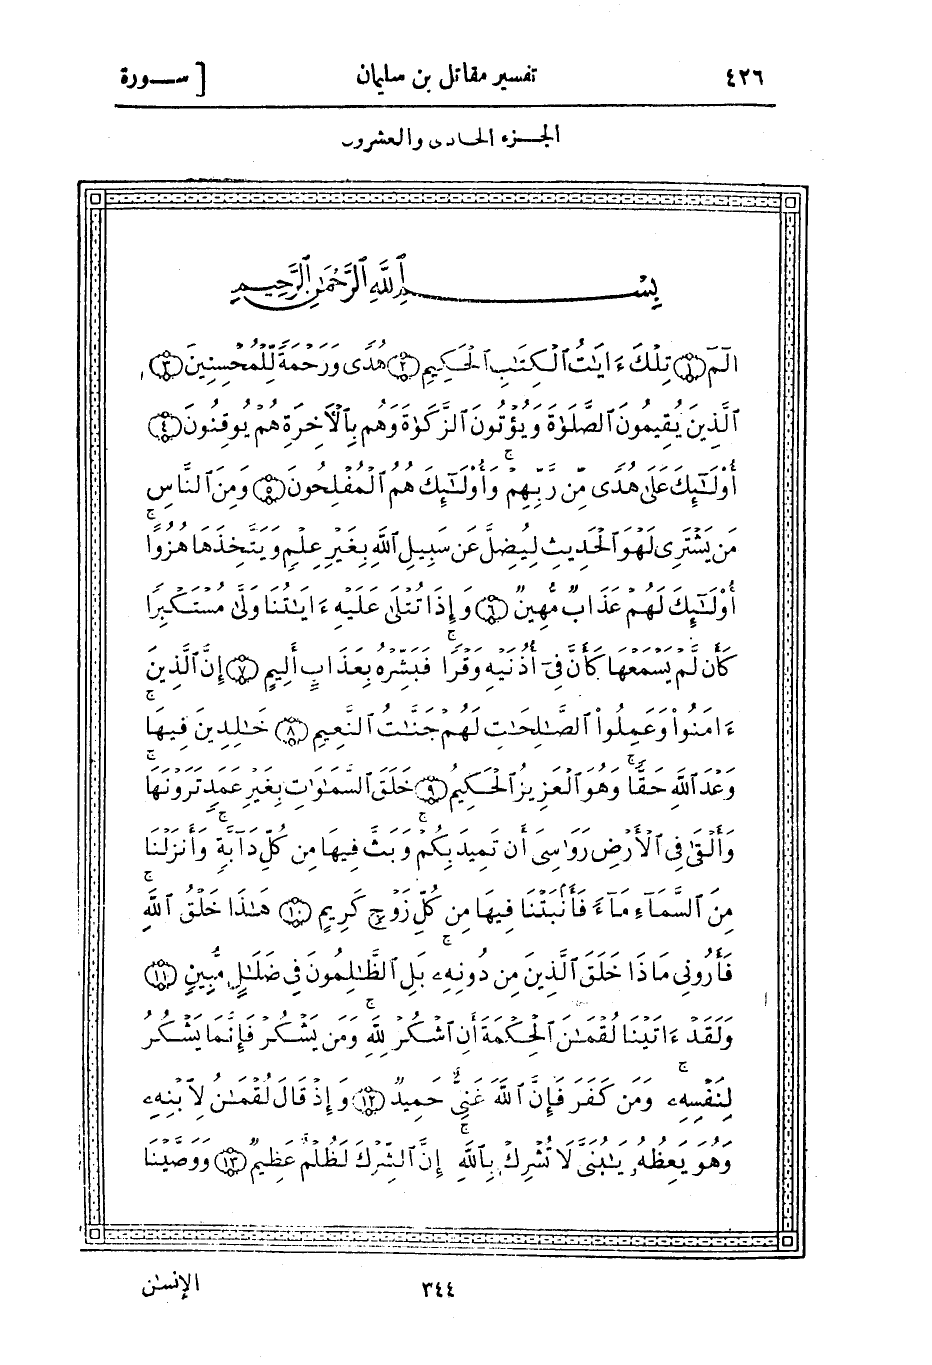 ٤٢٦ تفسير مقاتل بن سليمان [ سـورة
الجزء الحادى والعشرون
بِسْمِ اللَّهِ الرَّحْمَٰنِ الرَّحِيمِ
الٓمٓ ﴿١﴾ تِلْكَ ءَايَٰتُ ٱلْكِتَٰبِ ٱلْحَكِيمِ ﴿٢﴾ هُدًى وَرَحْمَةً لِّلْمُحْسِنِينَ ﴿٣﴾
ٱلَّذِينَ يُقِيمُونَ ٱلصَّلَوٰةَ وَيُؤْتُونَ ٱلزَّكَوٰةَ وَهُم بِٱلْأَخِرَةِ هُمْ يُوقِنُونَ ﴿٤﴾
أُوْلَٰٓئِكَ عَلَىٰ هُدًى مِّن رَّبِّهِمْ ۖ وَأُوْلَٰٓئِكَ هُمُ ٱلْمُفْلِحُونَ ﴿٥﴾ وَمِنَ ٱلنَّاسِ
مَن يَشْتَرِى لَهْوَ ٱلْحَدِيثِ لِيُضِلَّ عَن سَبِيلِ ٱللَّهِ بِغَيْرِ عِلْمٍ وَيَتَّخِذَهَا هُزُوًا ۚ
أُوْلَٰٓئِكَ لَهُمْ عَذَابٌ مُّهِينٌ ﴿٦﴾ وَإِذَا تُتْلَىٰ عَلَيْهِ ءَايَٰتُنَا وَلَّىٰ مُسْتَكْبِرًا
كَأَن لَّمْ يَسْمَعْهَا كَأَنَّ فِىٓ أُذُنَيْهِ وَقْرًا ۖ فَبَشِّرْهُ بِعَذَابٍ أَلِيمٍ ﴿٧﴾ إِنَّ ٱلَّذِينَ
ءَامَنُوا۟ وَعَمِلُوا۟ ٱلصَّٰلِحَٰتِ لَهُمْ جَنَّٰتُ ٱلنَّعِيمِ ﴿٨﴾ خَٰلِدِينَ فِيهَا ۖ
وَعْدَ ٱللَّهِ حَقًّا ۚ وَهُوَ ٱلْعَزِيزُ ٱلْحَكِيمُ ﴿٩﴾ خَلَقَ ٱلسَّمَٰوَٰتِ بِغَيْرِ عَمَدٍ تَرَوْنَهَا ۖ
وَأَلْقَىٰ فِى ٱلْأَرْضِ رَوَٰسِىَ أَن تَمِيدَ بِكُمْ وَبَثَّ فِيهَا مِن كُلِّ دَآبَّةٍ ۚ وَأَنزَلْنَا
مِنَ ٱلسَّمَآءِ مَآءً فَأَنۢبَتْنَا فِيهَا مِن كُلِّ زَوْجٍ كَرِيمٍ ﴿١٠﴾ هَٰذَا خَلْقُ ٱللَّهِ
فَأَرُونِى مَاذَا خَلَقَ ٱلَّذِينَ مِن دُونِهِۦ ۚ بَلِ ٱلظَّٰلِمُونَ فِى ضَلَٰلٍ مُّبِينٍ ﴿١١﴾
وَلَقَدْ ءَاتَيْنَا لُقْمَٰنَ ٱلْحِكْمَةَ أَنِ ٱشْكُرْ لِلَّهِ ۚ وَمَن يَشْكُرْ فَإِنَّمَا يَشْكُرُ
لِنَفْسِهِۦ ۖ وَمَن كَفَرَ فَإِنَّ ٱللَّهَ غَنِىٌّ حَمِيدٌ ﴿١٢﴾ وَإِذْ قَالَ لُقْمَٰنُ لِٱبْنِهِۦ
وَهُوَ يَعِظُهُۥ يَٰبُنَىَّ لَا تُشْرِكْ بِٱللَّهِ ۖ إِنَّ ٱلشِّرْكَ لَظُلْمٌ عَظِيمٌ ﴿١٣﴾ وَوَصَّيْنَا
ٱلْإِنسَٰنَ
٣٤٤